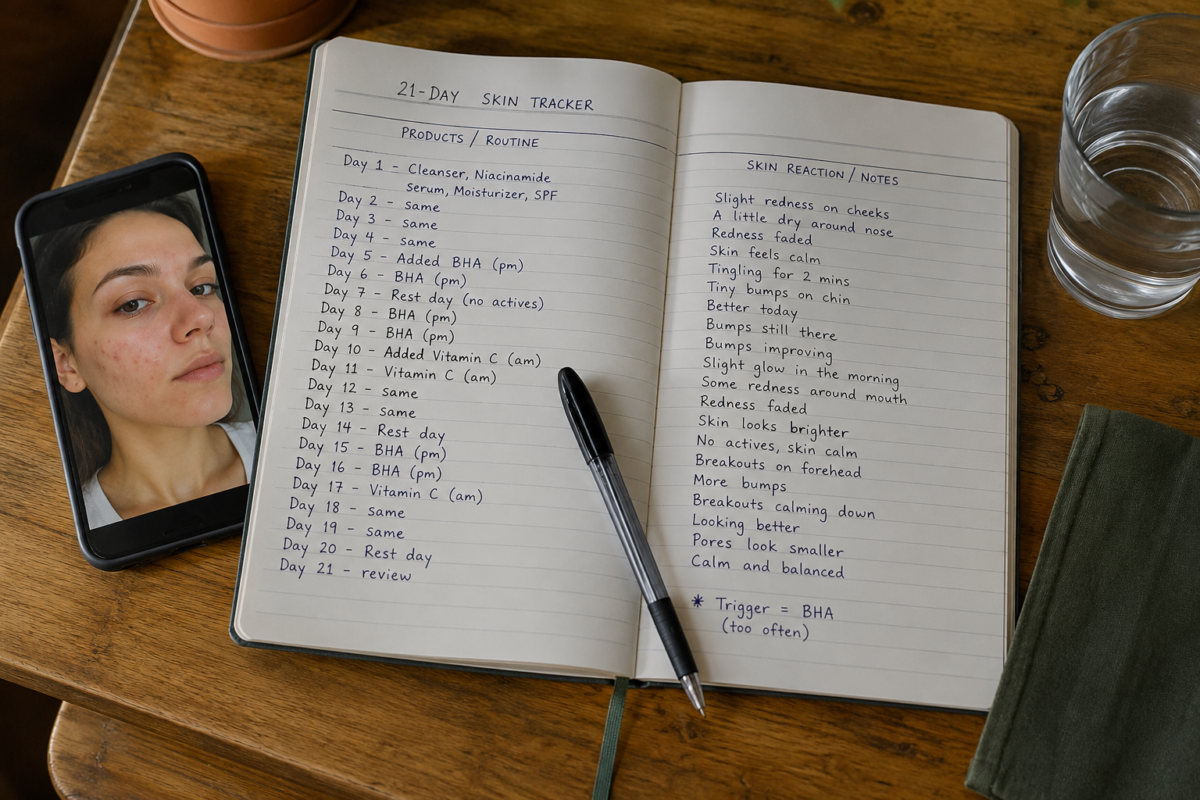 21-DAY SKIN TRACKER
PRODUCTS / ROUTINE
Day 1 - Cleanser, Niacinamide
Serum, Moisturizer, SPF
Day 2 - same
Day 3 - same
Day 4 - same
Day 5 - Added BHA (pm)
Day 6 - BHA (pm)
Day 7 - Rest day (no actives)
Day 8 - BHA (pm)
Day 9 - BHA (pm)
Day 10 - Added Vitamin C (am)
Day 11 - Vitamin C (am)
Day 12 - same
Day 13 - same
Day 14 - Rest day
Day 15 - BHA (pm)
Day 16 - BHA (pm)
Day 17 - Vitamin C (am)
Day 18 - same
Day 19 - same
Day 20 - Rest day
Day 21 - review
SKIN REACTION / NOTES
Slight redness on cheeks
A little dry around nose
Redness faded
Skin feels calm
Tingling for 2 mins
Tiny bumps on chin
Better today
Bumps still there
Bumps improving
Slight glow in the morning
Some redness around mouth
Redness faded
Skin looks brighter
No actives, skin calm
Breakouts on forehead
More bumps
Breakouts calming down
Looking better
Pores look smaller
Calm and balanced
* Trigger = BHA
(too often)